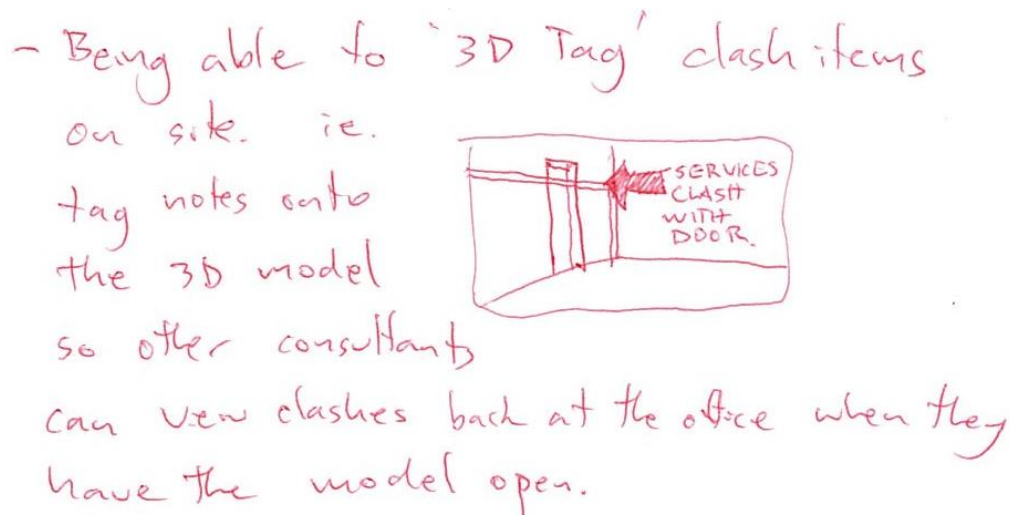 - Being able to '3D Tag' clash items
on site. ie.
tag notes onto
the 3D model
so other consultants
can view clashes back at the office when they
have the model open.
SERVICES
CLASH
WITH
DOOR.